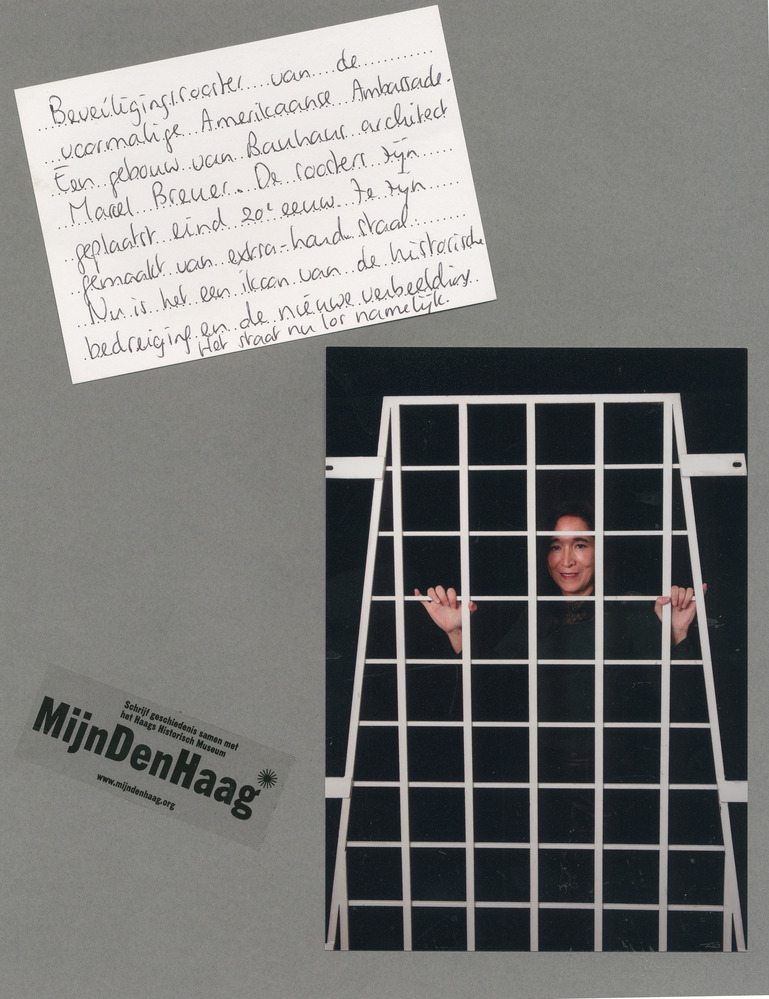 Beveiligingsrooster van de
voormalige Amerikaanse Ambassade.
Een gebouw van Bauhaus architect
Marcel Breuer. De roosters zijn
geplaatst eind 20e eeuw. Ze zijn
gemaakt van extra-hard staal.
Nu is het een ikoon van de historische
bedreiging en de nieuwe verbeelding.
Het staat nu los namelijk.
Schrijf geschiedenis samen met
het Haags Historisch Museum
MijnDenHaag*
www.mijndenhaag.org